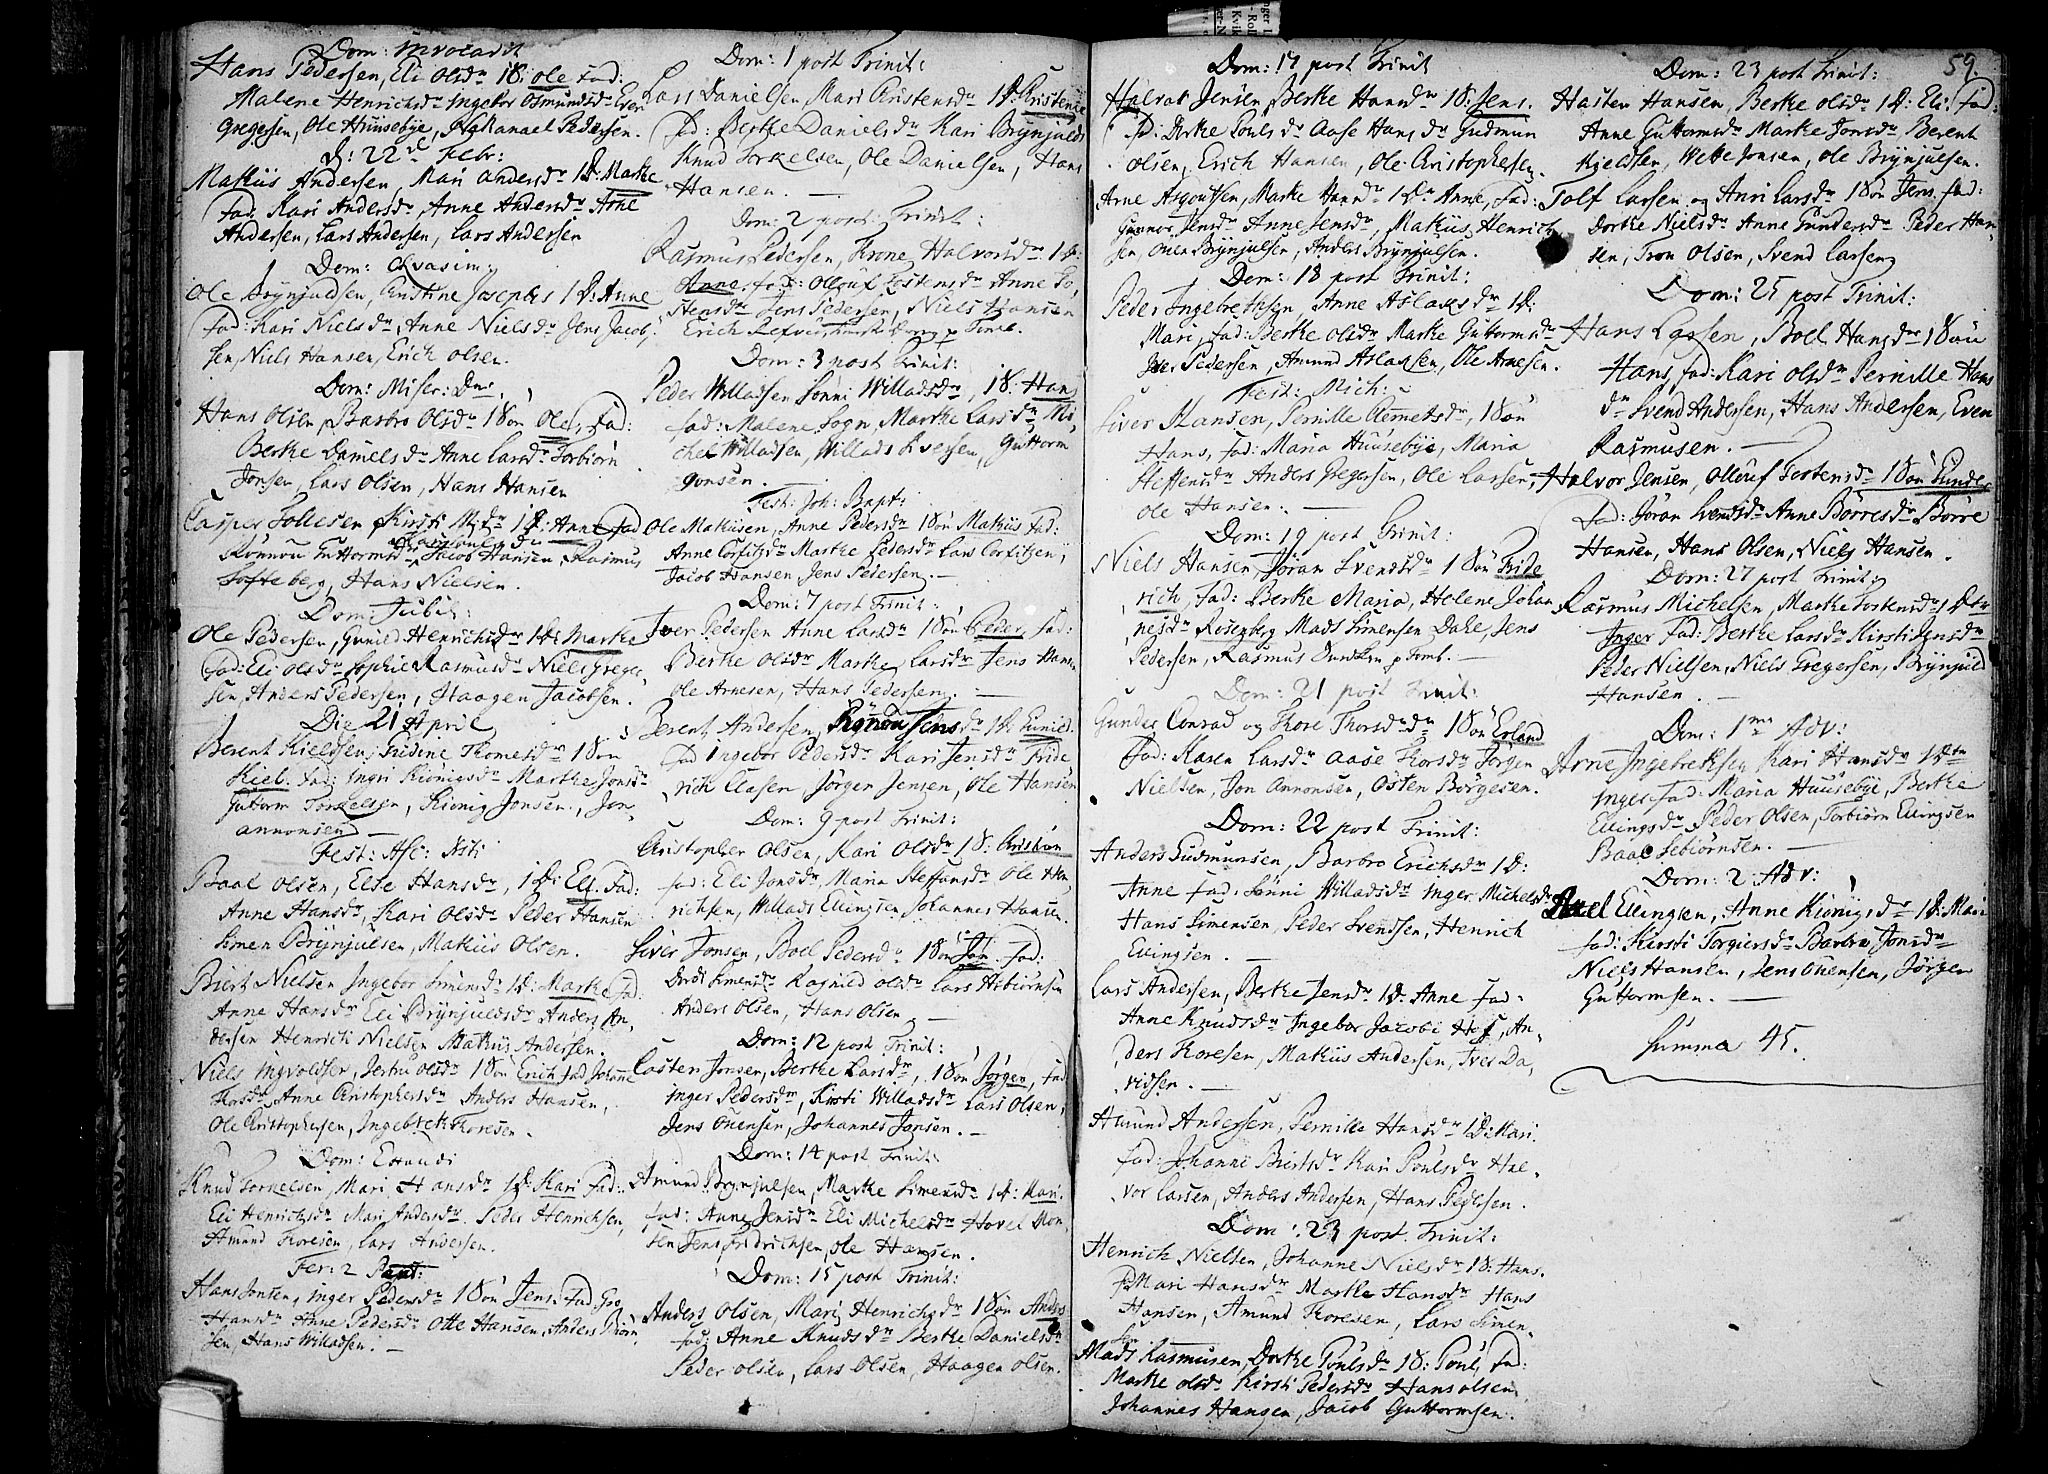 Dom: Invocavit
Hans Pedersen, Eli Olsdr 1 S: Ole Fad:
Malene Henrichsdr Ingebor Osmundsdr Even
Gregersen, Ole Huusebÿe, Nathanael Pedersen.
D: 22de Febr:
Mathiis Andersen, Mari Andersdr 1 D: Marthe
Fad: Kari Andersdr, Anne Andersdr Arne
Andersen, Lars Andersen, Lars Andersen
Dom: Qvasim:
Ole Brÿnjulsen, Christine Josephs 1 D: Anne
Fad: Kari Nielsdr, Anne Nielsdr Jens Jacob,
sen, Niels Hansen, Erich Olsen.
Dom: Miser: Dni
Hans Olsen, Barbro Olsdr 1 Søn Ole, Fad:
Berthe Danielsdr Anne Larsdr Torbiørn
Jonsen, Lars Olsen, Hans Hansen
Casper Tollesen Kirsti Mdr 1 D: Anne Fad
Rønnou Guttormsdr Jacob Hansen, Rasmus
Softeberg, Hans Nielsen.
Dom: Jubil:
Ole Pedersen, Gunild Henrichsdr 1 D: Marthe
Fad: Eli Olsdr Sophie Rasmusdr Niels Greger
sen, Anders Pedersen, Haagen Jacobsen.
Die 21 April
Berent Kieldsen, Gudine Thomesdr 1 Søn
Kiel. Fad: Ingri Kiönigsdr Marthe Jonsdr
Guttorm Torkelsen, Kiönig Jonsen, Jon
Annonsen
Fest: Asc: Xsti
Baal Olsen, Else Hansdr, 1 D: Eli. Fad:
Anne Hansdr, Kari Olsdr Peder Hansen
Simen Brÿnjulsen, Mathiis Olsen.
Biert Nielsen Ingebor Simensdr 1 D: Marthe Fad:
Anne Hansdr Eli Brÿnjuldsdr Anders An,
dersen Henrich Nielsen Mathiis Andersen.
Niels Ingvoldsen, Jertru Olsdr 1 Søn Erich Fad Johanne
Thorsdr Anne Christophersdr Anders Hansen,
Ole Christophersen, Ingebreth Thoresen.
Dom: Exaudi
Knud Torkelsen, Mari Hansdr 1 D: Kari Fad:
Eli Henrichsdr Mari Andersdr Peder Henrichsen,
Amund Thoresen, Lars Andersen.
Fer: 2 Pent:
Hans Jonsen, Inger Pedersdr 1 Søn Jens. Fad Gro
Hansdr Anne Pedersdr Otte Hansen, Anders Biørn
sen, Hans Willadsen.
Dom: 1 post Trinit:
Lars Danielsen Mari Christensdr 1 D: Christence
Fad: Berthe Danielsdr Kari Brÿnjulds
Knud Torkelsen, Ole Danielsen, Hans
Hansen.
Dom: 2 post Trinit:
Rasmus Pedersen, Trone Halvorsdr 1 D:
Anne, Fad: Ollouf Tostensdr Anne To,
stensdr Jens Pedersen, Niels Hansen
Erich
Dom: 3 post Trinit:
Peder Willadsen Sønni Willadsdr, 1 S: Hans
Fad: Malene Sogn, Marthe Larsdr Mi,
chel Willadsen, Willads Iversen, Guttorm
Jonsen.
Fest: Joh: Bapt:
Ole Mathisen, Anne Pedersdr 1 Søn Mathiis Fad:
Anne Corfitzdr Marthe Pedersdr Lars Corfitzen,
Jacob Hansen, Jens Pedersen.
Dom: 7 post Trinit:
Iver Pedersen Anne Larsdr 1 Søn Peder, Fad:
Berthe Olsdr Marthe Larsdr Jens Hans
Ole Arnesen, Hans Pedersen.
Berent Andersen, Rønnou Jensdr 1 D: Gunild.
Fad Ingebor Pedersdr Kari Jensdr Fride
rich Clasen, Jørgen Jensen, Ole Hansen
Dom: 9 post Trinit:
Christopher Olsen, Kari Olsdr 1 S: Christian
Fad: Eli Jonsdr, Maria Steffensdr Ole Hen,
richsen, Willads Ellingsen Johannes Hansen.
Siver Jonsen, Boel Pedersdr 1 Søn Jon. Fad:
Dordi Simensdr Ragnild Olsdr Lars Asbiørnsen
Anders Olsen, Hans Olsen
Dom: 12 post Trinit:
Casten Jonsen, Berthe Larsdr, 1 Søn Jørgen, Fad
Inger Pedersdr, Kirsti Willadsdr Lars Olsen,
Jens Ouensen, Johannes Jonsen.
Dom: 14 post Trinit:
Amund Brÿnjulsen, Marthe Simensdr 1 D: Mari.
Fad: Anne Jensdr Eli Michelsdr Hovel Mon,
sen Jens Fridrichsen, Ole Hansen.
Dom: 15 post Trinit:
Anders Olsen, Mari Henrichsdr 1 Søn Anders
Fad: Anne Knudsdr Berthe Danielsdr
Peder Olsen, Lars Olsen, Haagen Olsen.
Dom: 17 post Trinit
Halvor Jensen, Berthe Hansdr 1 S: Jens.
Fad: Dorthe Poulsdr Aase Hansdr Gudmun
Olsen, Erich Hansen, Ole Christophersen.
Arne Asgoutsen, Marthe Hansdr 1 Dr Anne, Fad:
Gunnor Jensdr Anne Jensdr, Mathiis Henrich
sen, Ouen Brÿnjulsen, Anders Brÿnjulsen.
Dom: 18 post Trinit:
Peder Ingebrethsen, Anne Aslaksdr 1 D:
Mari, Fad: Berthe Olsdr Marthe Guttormsdr
Iver Pedersen, Amund Aslaksen, Ole Arnesen.
Fest: Mich:
Siver Hansen, Pernille Clemetsdr, 1 Søn
Hans, Fad: Maria Huusebÿe, Maria
Steffensdr Anders Gregersen, Ole Larsen,
Ole Hansen.
Dom: 19 post Trinit:
Niels Hansen, Jöran Svendsdr 1 Søn Fride
rich, Fad: Berthe Maria, Helene Johan
nesdr Rosenberg Mads Simensen Dahl, Jens
Pedersen, Rasmus
Dom: 21 post Trinit:
Gunder Conrad og Thore Thorsdr 1 Søn Erland
Fad: Karen Larsdr Aase Thorsdr Jörgen
Nielsen, Jon Annonsen, Östen Börgesen.
Dom: 22 post Trinit:
Anders Gudmunsen, Barbro Erichsdr 1 D:
Anne Fad: Sønni Willadsdr Inger Michelsdr
Hans Simensen, Peder Svendsen, Henrich
Ellingsen.
Lars Andersen, Berthe Jensdr 1 D: Anne Fad:
Anne Knudsdr Ingebor Jacobi Hof, An,
ders Thoresen, Mathiis Andersen, Iver Da,
vidsen.
Amund Andersen, Pernille Hansdr 1 D: Mari.
Fad: Johanne Biertsdr Kari Poulsdr Hal,
vor Larsen, Anders Andersen, Hans Pedersen.
Dom: 23 post Trinit:
Henrich Nielsen, Johanne Nielsdr 1 S: Hans.
F: Mari Hansdr Marthe Hansdr Hans
Hansen, Amund Thoresen, Lars Simen,
sen
Mads Rasmusen, Dorthe Poulsdr 1 S: Poul, Fad:
Marthe Olsdr Kirsti Pedersdr Hans Olsen
Johannes Hansen, Jacob Guttormsen.
59.
Dom: 23 post Trinit:
Hasten Hansen, Berthe Olsdr 1 D: Eli. Fad:
Anne Guttormsdr Marthe Jonsdr Berent
Kieldsen, Wette Jonsen, Ole Brÿnjulsen.
Tolf Larsen og Anri Larsdr 1 Søn Jens. Fad:
Dorthe Nielsdr Anne Gundersdr Peder Han,
sen, Tron Olsen, Svend Larsen
Dom: 25 post Trinit:
Hans Lassen, Boel Hansdr 1 Søn
Hans, Fad: Kari Olsdr Pernille Hans
dr Svend Andersen, Hans Andersen, Even
Rasmusen.
Halvor Jensen, Ollouf Tostensdr 1 Søn Gunder
Fad: Jöran Svendsdr Anne Börresdr Börre
Hansen, Hans Olsen, Niels Hansen.
Dom: 27 post Trinit:
Rasmus Michelsen, Marthe Tostensdr 1 Dtr
Inger Fad: Berthe Larsdr Kirsti Jensdr
Peder Nielsen, Niels Gregersen, Brÿnjuld
Hansen.
Dom: 1ma Adv:
Arne Ingebrethsen, Kari Hansdr 1 Dtr
Inger, Fad: Maria Huusebÿe, Berthe
Ellingsdr Peder Olsen, Torbiörn Ellingsen
Baal Sebiørnsen.
Dom: 2 Adv:
Axel Ellingsen, Anne Kiönigsdr 1 D: Mari
Fad: Kirsti Torgiersdr Barbra Jonsdr
Niels Hansen, Jens Ouensen, Jørgen
Guttormsen.
Summa 45.